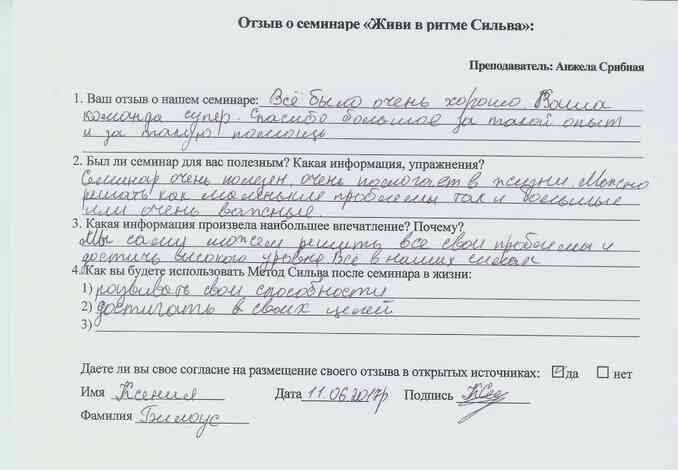 Отзыв о семинаре «Живи в ритме Сильва»:
Преподаватель: Анжела Срибная
1. Ваш отзыв о нашем семинаре: Всё было очень хорошо. Ваша
команда супер. Спасибо большое за такой опыт
и за такую помощь
2. Был ли семинар для вас полезным? Какая информация, упражнения?
Семинар очень полезен, очень помогает в жизни. Можно
решать как маленькие проблемы так и большие
или очень важные.
3. Какая информация произвела наибольшее впечатление? Почему?
Мы сами можем решить все свои проблемы и
достичь высокого уровня. Всё в наших силах
4. Как вы будете использовать Метод Сильва после семинара в жизни:
1) развивать свои способности
2) достигать в своих целей
3)
Даете ли вы свое согласие на размещение своего отзыва в открытых источниках: да нет
Имя Ксения Дата 11.06.2017р Подпись
Фамилия Билоус